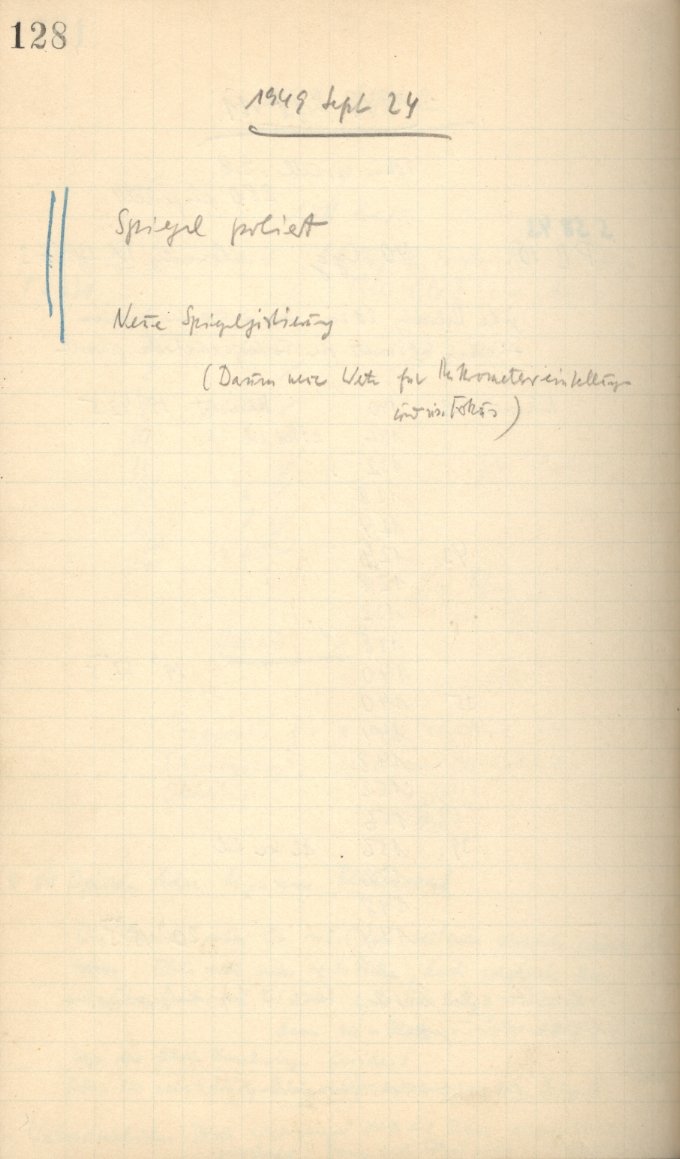 128
1949 Sept 24
Spiegel poliert
Neue Spiegeljustierung
(Darum neue Werte für Mikrometereinstellung
und den Fokus)